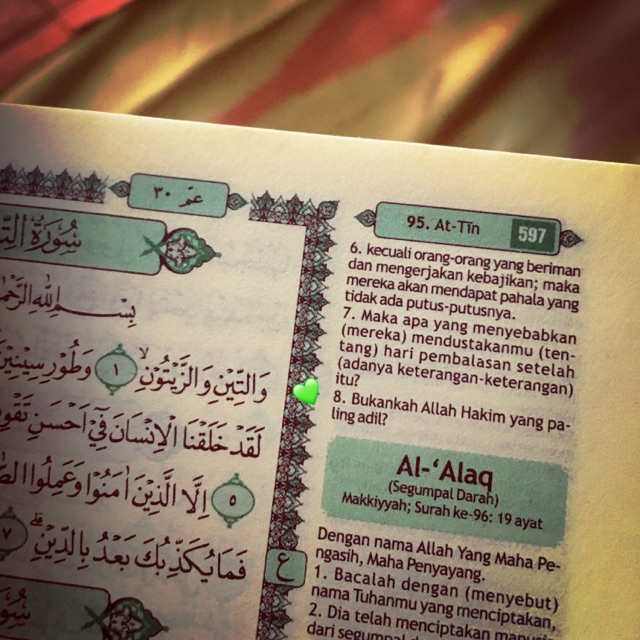 عمّ ٣٠
سُوْرَةُ
بِسْمِ اللّٰهِ
وَالتِّيْنِ وَالزَّيْتُوْنِۙ ١ وَطُوْرِ سِيْنِيْنَ
لَقَدْ خَلَقْنَا الْاِنْسَانَ فِيْٓ اَحْسَنِ
٥ اِلَّا الَّذِيْنَ اٰمَنُوْا وَعَمِلُوا
فَمَا يُكَذِّبُكَ بَعْدُ بِالدِّيْنِۗ ٧
ع
95. At-Tīn 597
6. kecuali orang-orang yang beriman
dan mengerjakan kebajikan; maka
mereka akan mendapat pahala yang
tidak ada putus-putusnya.
7. Maka apa yang menyebabkan
(mereka) mendustakanmu (ten-
tang) hari pembalasan setelah
(adanya keterangan-keterangan)
itu?
8. Bukankah Allah Hakim yang pa-
ling adil?
Al-‘Alaq
(Segumpal Darah)
Makkiyyah; Surah ke-96: 19 ayat
Dengan nama Allah Yang Maha Pe-
ngasih, Maha Penyayang.
1. Bacalah dengan (menyebut)
nama Tuhanmu yang menciptakan,
2. Dia telah menciptakan
dari segumpal